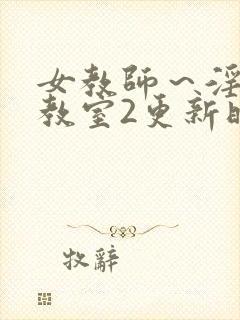 女教師～淫
教室2更新時
牧辭